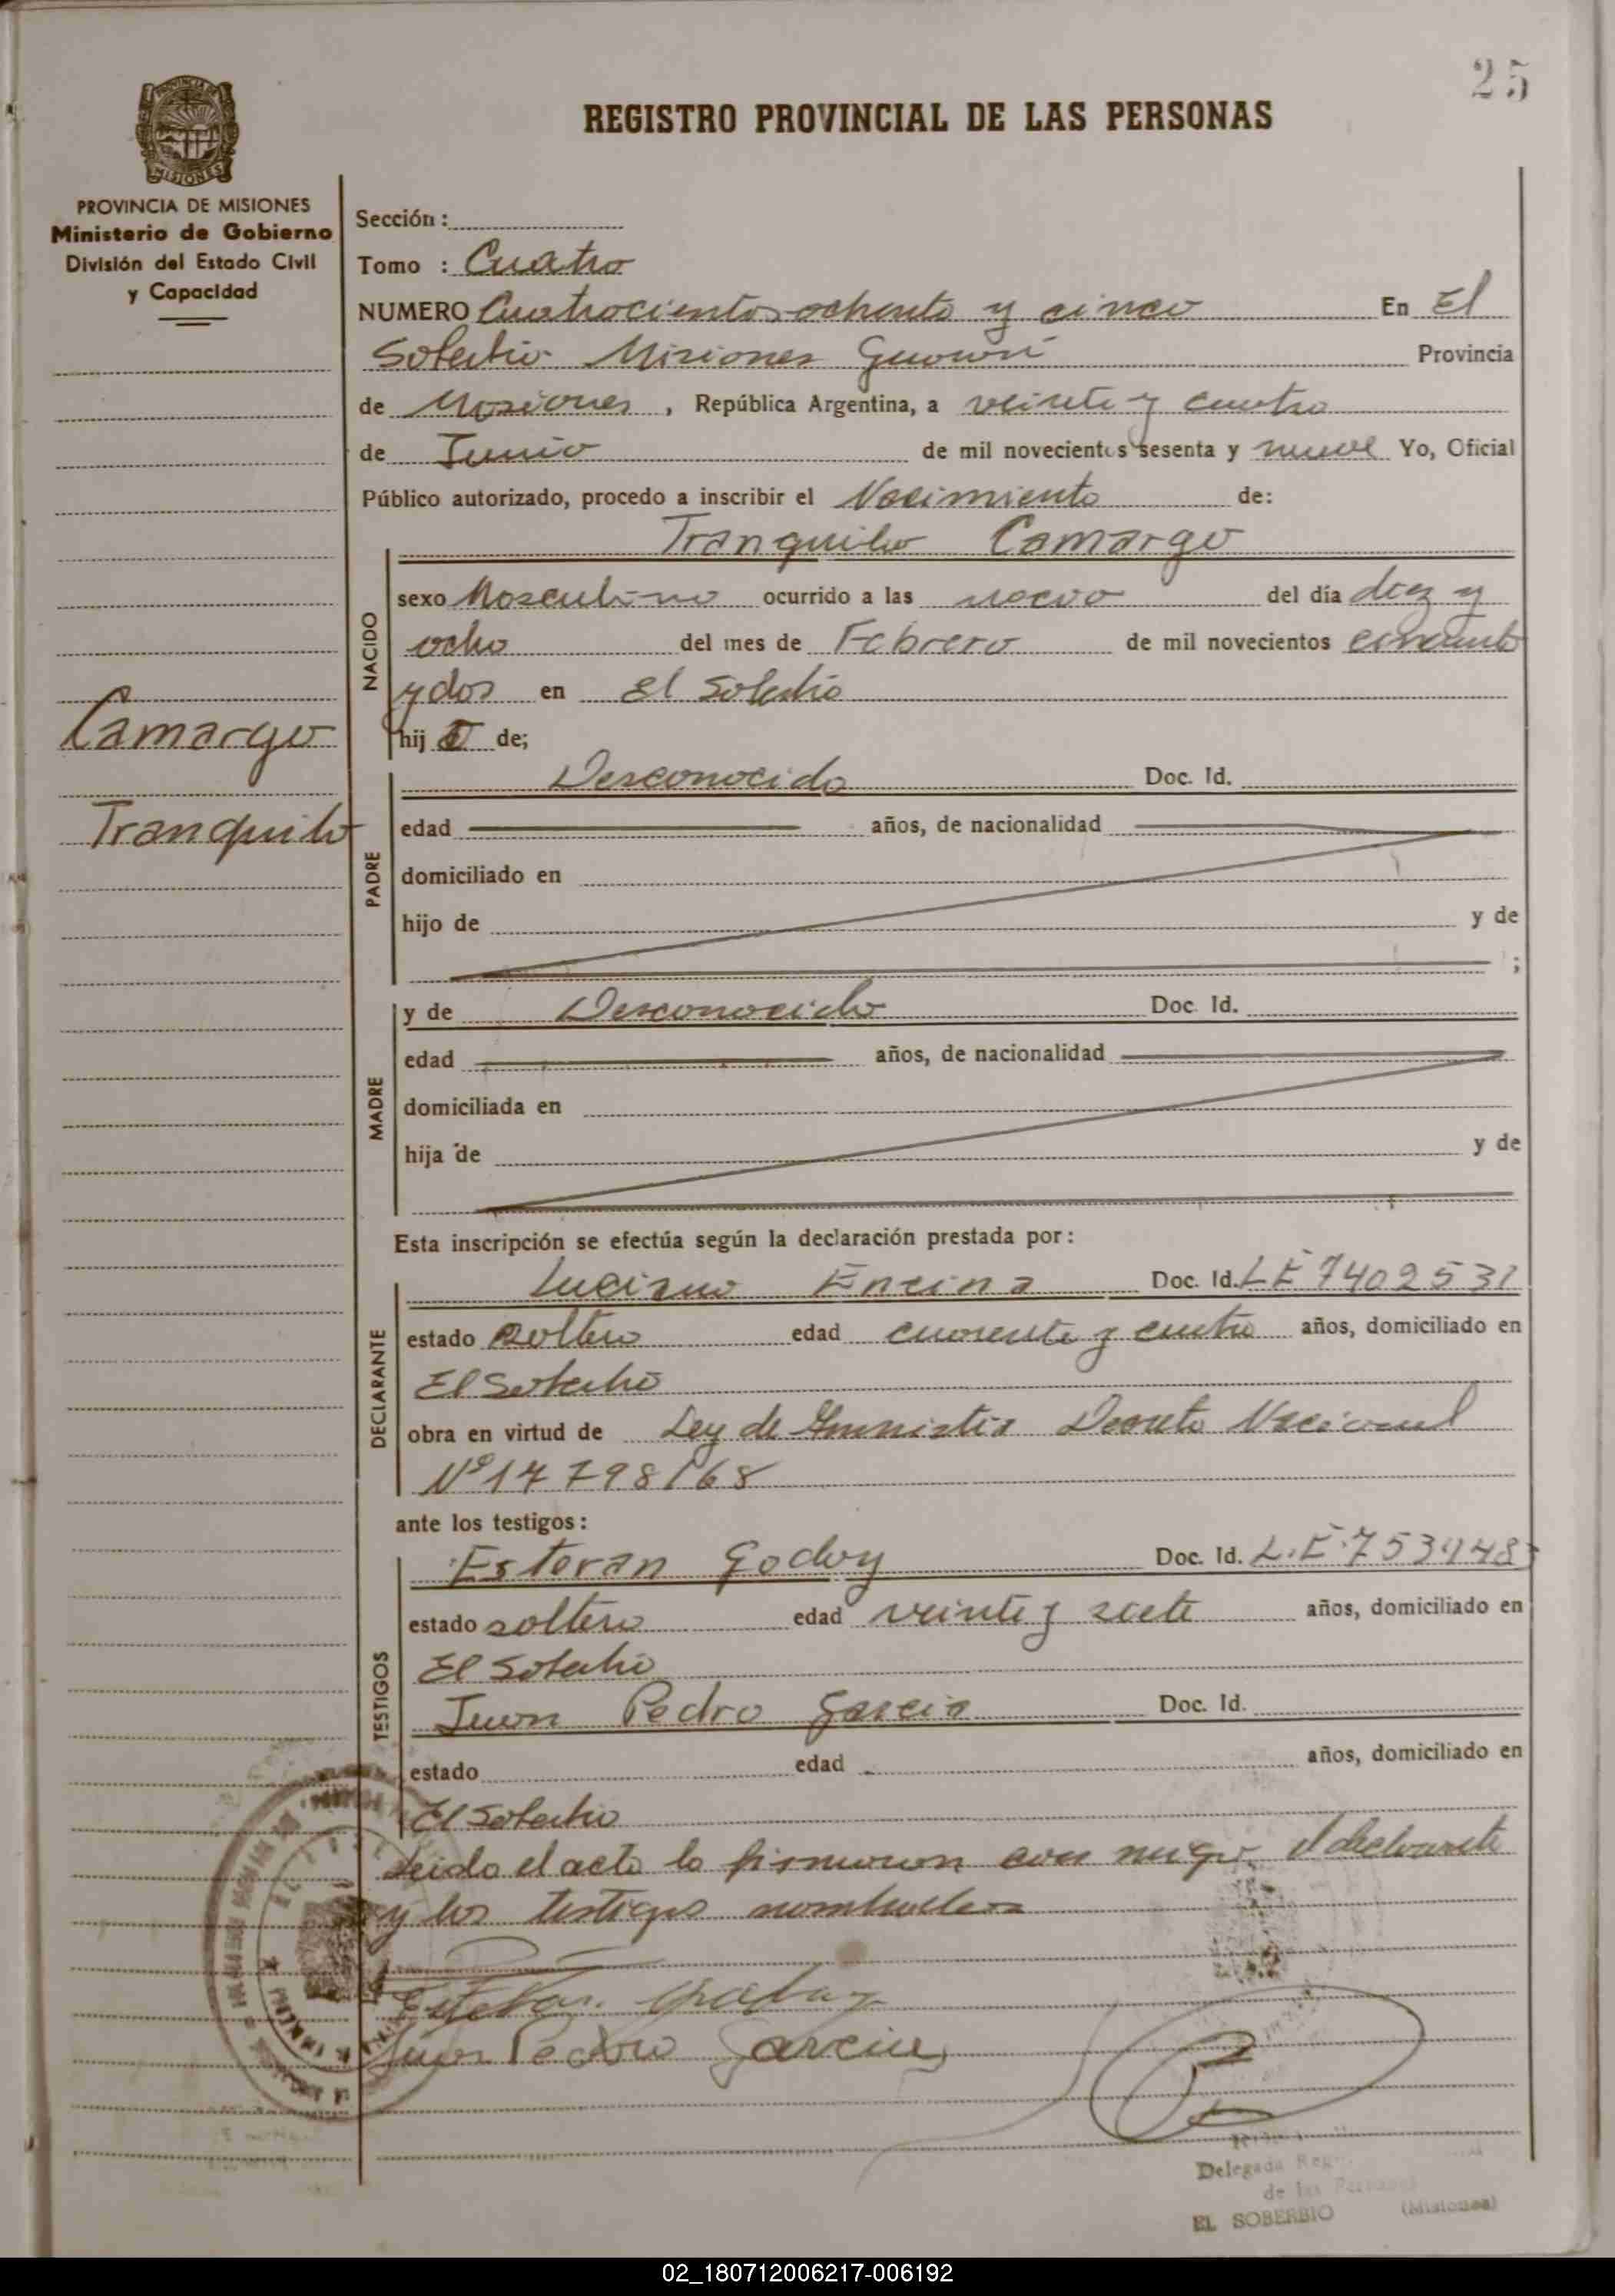 25
REGISTRO PROVINCIAL DE LAS PERSONAS
PROVINCIA DE MISIONES
Ministerio de Gobierno
División del Estado Civil
y Capacidad
Sección :
Tomo : Cuatro
NUMERO Cuatrocientos ochenta y cinco En El
Soberbio Misiones Guarani Provincia
de Misiones , República Argentina, a veinte y cuatro
de Junio de mil novecientos sesenta y nueve Yo, Oficial
Público autorizado, procedo a inscribir el Nacimiento de:
Tranquilo Camargo
NACIDO
sexo Masculino ocurrido a las del día diez y
ocho del mes de Febrero de mil novecientos cincuenta
y dos en El Soberbio
hijo de;
Camargo
Tranquilo
PADRE
Desconocido Doc. Id.
edad años, de nacionalidad
domiciliado en
hijo de y de
;
MADRE
y de Desconocido Doc. Id.
edad años, de nacionalidad
domiciliada en
hija de y de
Esta inscripción se efectúa según la declaración prestada por:
DECLARANTE
Luciano Encina Doc. Id. L E 7402531
estado soltero edad cuarenta y cuatro años, domiciliado en
El Soberbio
obra en virtud de Ley de Amnistia Decreto Nacional
Nº 17798/68
ante los testigos:
TESTIGOS
Estevan Godoy Doc. Id. L.E.
estado soltero edad veinte y siete años, domiciliado en
El Soberbio
Juan Pedro Garcia Doc. Id.
estado edad años, domiciliado en
El Soberbio
Leido el acta la firmaron con migo el declarante
y los testigos nombrados
Estevan Godoy
Juan Pedro Garcia
Delegada
de las
EL SOBERBIO (Misiones)
02_180712006217-006192